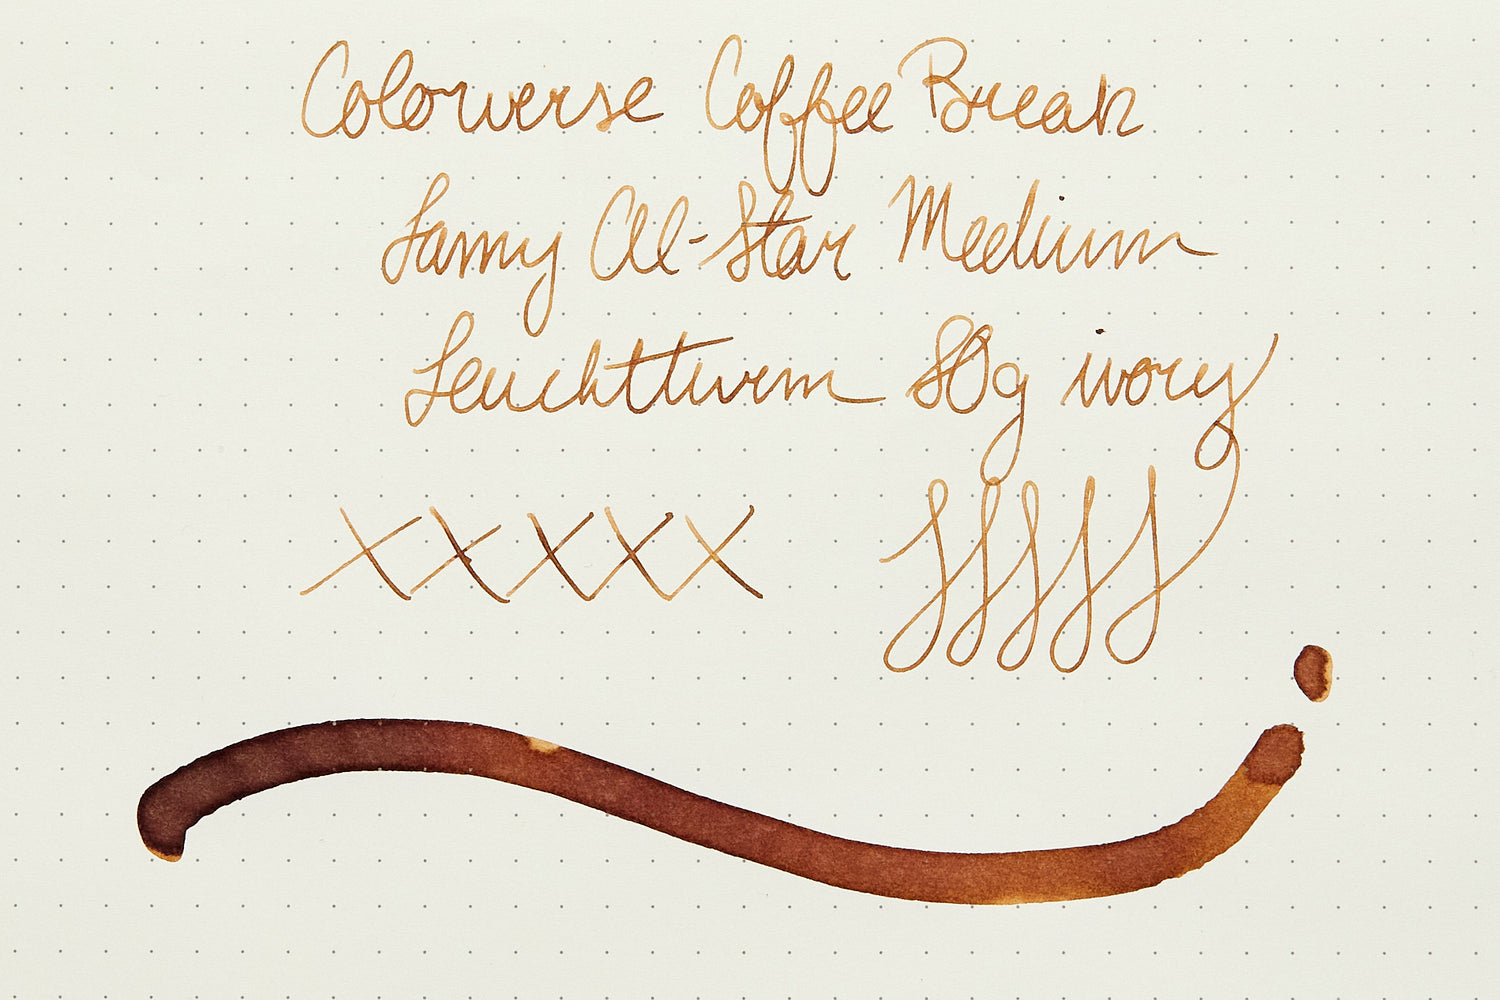 Colorverse Coffee Break
Lamy Al-Star Medium
Leuchtturm 80g ivory
xxxxx